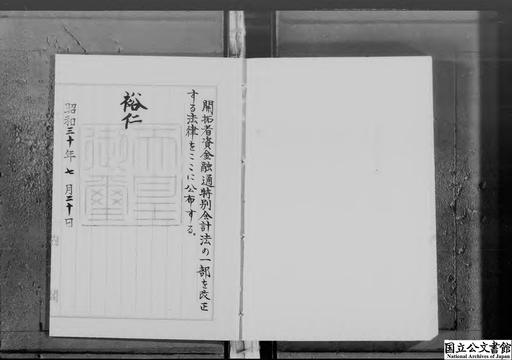 開拓者資金融通特別会計法の一部を改正
する法律をここに公布する。
裕仁
天皇
御璽
昭和三十年七月二十日
内閣
国立公文書館
National Archives of Japan